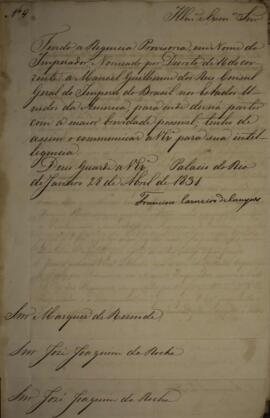 Nº 9
Illmo e Exmo Snr
Tendo a Regencia Provisoria, em Nome do
Imperador, Nomeado por Decreto de 16 do cor-
rente, a Manoel Guilherme dos Reis Consul
Geral do Imperio do Brasil nos Estados U-
nidos da America, para onde devia partir
com a maior brevidade possivel, tenho de
assim o communicar a V. Exa para sua intel-
ligencia.
Deus Guarde a V. Exa Palacio do Rio
de Janeiro 28 de Abril de 1831
Francisco Carneiro de Campos
Snr Marquez de Rezende
Snr José Joaquim da Rocha
Snr José Joaquim da Rocha